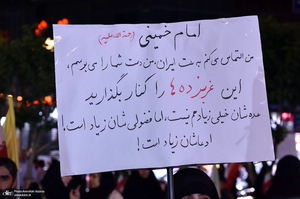 امام خمینی (رحمة الله علیه)
من التماس می کنم به ملت ایران، من دست شما را می بوسم،
این غربزده ها را کنار بگذارید
عده شان خیلی زیاد هم نیست، اما فضولی شان زیاد است!
ادعاشان زیاد است!